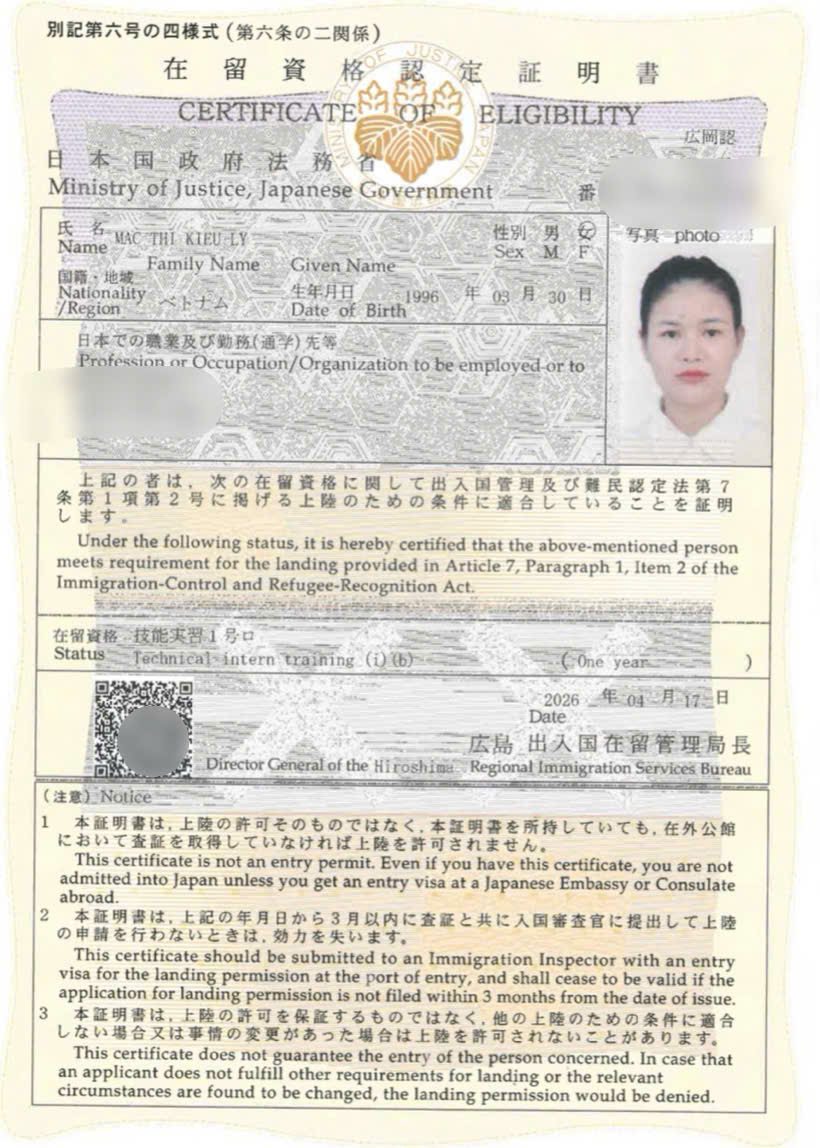 別記第六号の四様式(第六条の二関係)
在留資格認定証明書
CERTIFICATE OF ELIGIBILITY
広岡認
日本国政府法務省
Ministry of Justice, Japanese Government
番
氏名 MAC THI KIEU LY 性別 男 女
Name Family Name Given Name Sex M F
写真 photo
国籍・地域 ベトナム 生年月日 1996 年 03 月 30 日
Nationality/Region Date of Birth
日本での職業及び勤務(通学)先等
Profession or Occupation/Organization to be employed or to
上記の者は, 次の在留資格に関して出入国管理及び難民認定法第7
条第1項第2号に掲げる上陸のための条件に適合していることを証明
します。
Under the following status, it is hereby certified that the above-mentioned person
meets requirement for the landing provided in Article 7, Paragraph 1, Item 2 of the
Immigration-Control and Refugee-Recognition Act.
在留資格 技能実習1号ロ
Status Technical intern training (i)(b) ( One year )
2026 年 04 月 17 日
Date
広島 出入国在留管理局長
Director General of the Hiroshima Regional Immigration Services Bureau
(注意) Notice
1 本証明書は, 上陸の許可そのものではなく, 本証明書を所持していても, 在外公館
において査証を取得していなければ上陸を許可されません。
This certificate is not an entry permit. Even if you have this certificate, you are not
admitted into Japan unless you get an entry visa at a Japanese Embassy or Consulate
abroad.
2 本証明書は, 上記の年月日から3月以内に査証と共に入国審査官に提出して上陸
の申請を行わないときは, 効力を失います。
This certificate should be submitted to an Immigration Inspector with an entry
visa for the landing permission at the port of entry, and shall cease to be valid if the
application for landing permission is not filed within 3 months from the date of issue.
3 本証明書は, 上陸の許可を保証するものではなく, 他の上陸のための条件に適合
しない場合又は事情の変更があった場合は上陸を許可されないことがあります。
This certificate does not guarantee the entry of the person concerned. In case that
an applicant does not fulfill other requirements for landing or the relevant
circumstances are found to be changed, the landing permission would be denied.